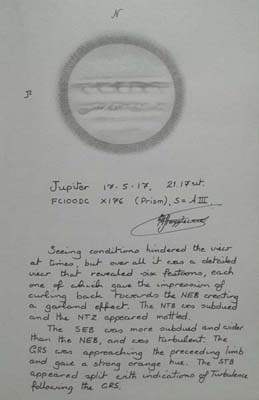 N
P
Jupiter 17.5.17, 21.17ut.
FC100DC X176 (Prism), S = λ III.
Seeing conditions hindered the view
at times, but over all it was a detailed
view that revealed six festoons, each
one of which gave the impression of
curling back towards the NEB creating
a garland effect. The NTB was subdued
and the NTZ appeared mottled.
The SEB was more subdued and wider
than the NEB, and was turbulent. The
GRS was approaching the preceeding limb
and gave a strong orange hue. The STB
appeared split with indications of Turbulence
following the GRS.